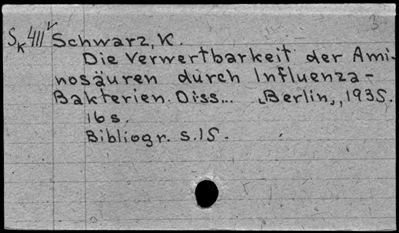 SK411 Schwarz, K.
Die Verwertbarkeit der Ami-
nosäuren durch Influenza-
Bakterien. Diss... „Berlin„, 1935.
16 s.
Bibliogr. s.15.